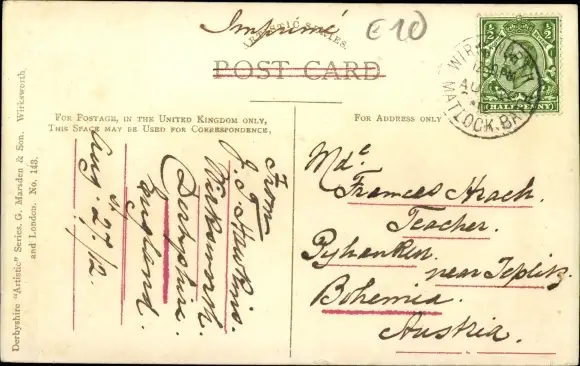 Imprimé
ARTISTIC SERIES.
£10
POST CARD
FOR POSTAGE, IN THE UNITED KINGDOM ONLY,
THIS SPACE MAY BE USED FOR CORRESPONDENCE,
FOR ADDRESS ONLY
Derbyshire "Artistic" Series. G. Marsden & Son. Wirksworth
and London. No. 148.
From
Wirksworth.
Derbyshire.
England.
Aug. st 27/12.
½ ½
HALFPENNY
WIRK
AU
MATLOCK.BA
Mde
Frances Hrach.
Teacher.
near Teplitz
Bohemia.
Austria.